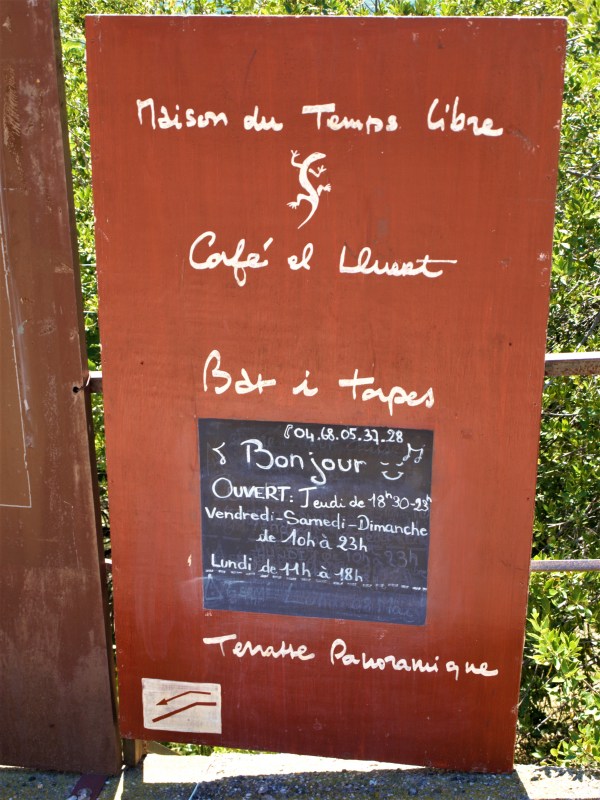 Maison du Temps Libre
Café el Lluert
Bar i tapes
04.68.05.37.28
Bonjour
OUVERT: Jeudi de 18h30-23h
Vendredi-Samedi-Dimanche
de 10h à 23h
Lundi de 11h à 18h
Terrasse Panoramique